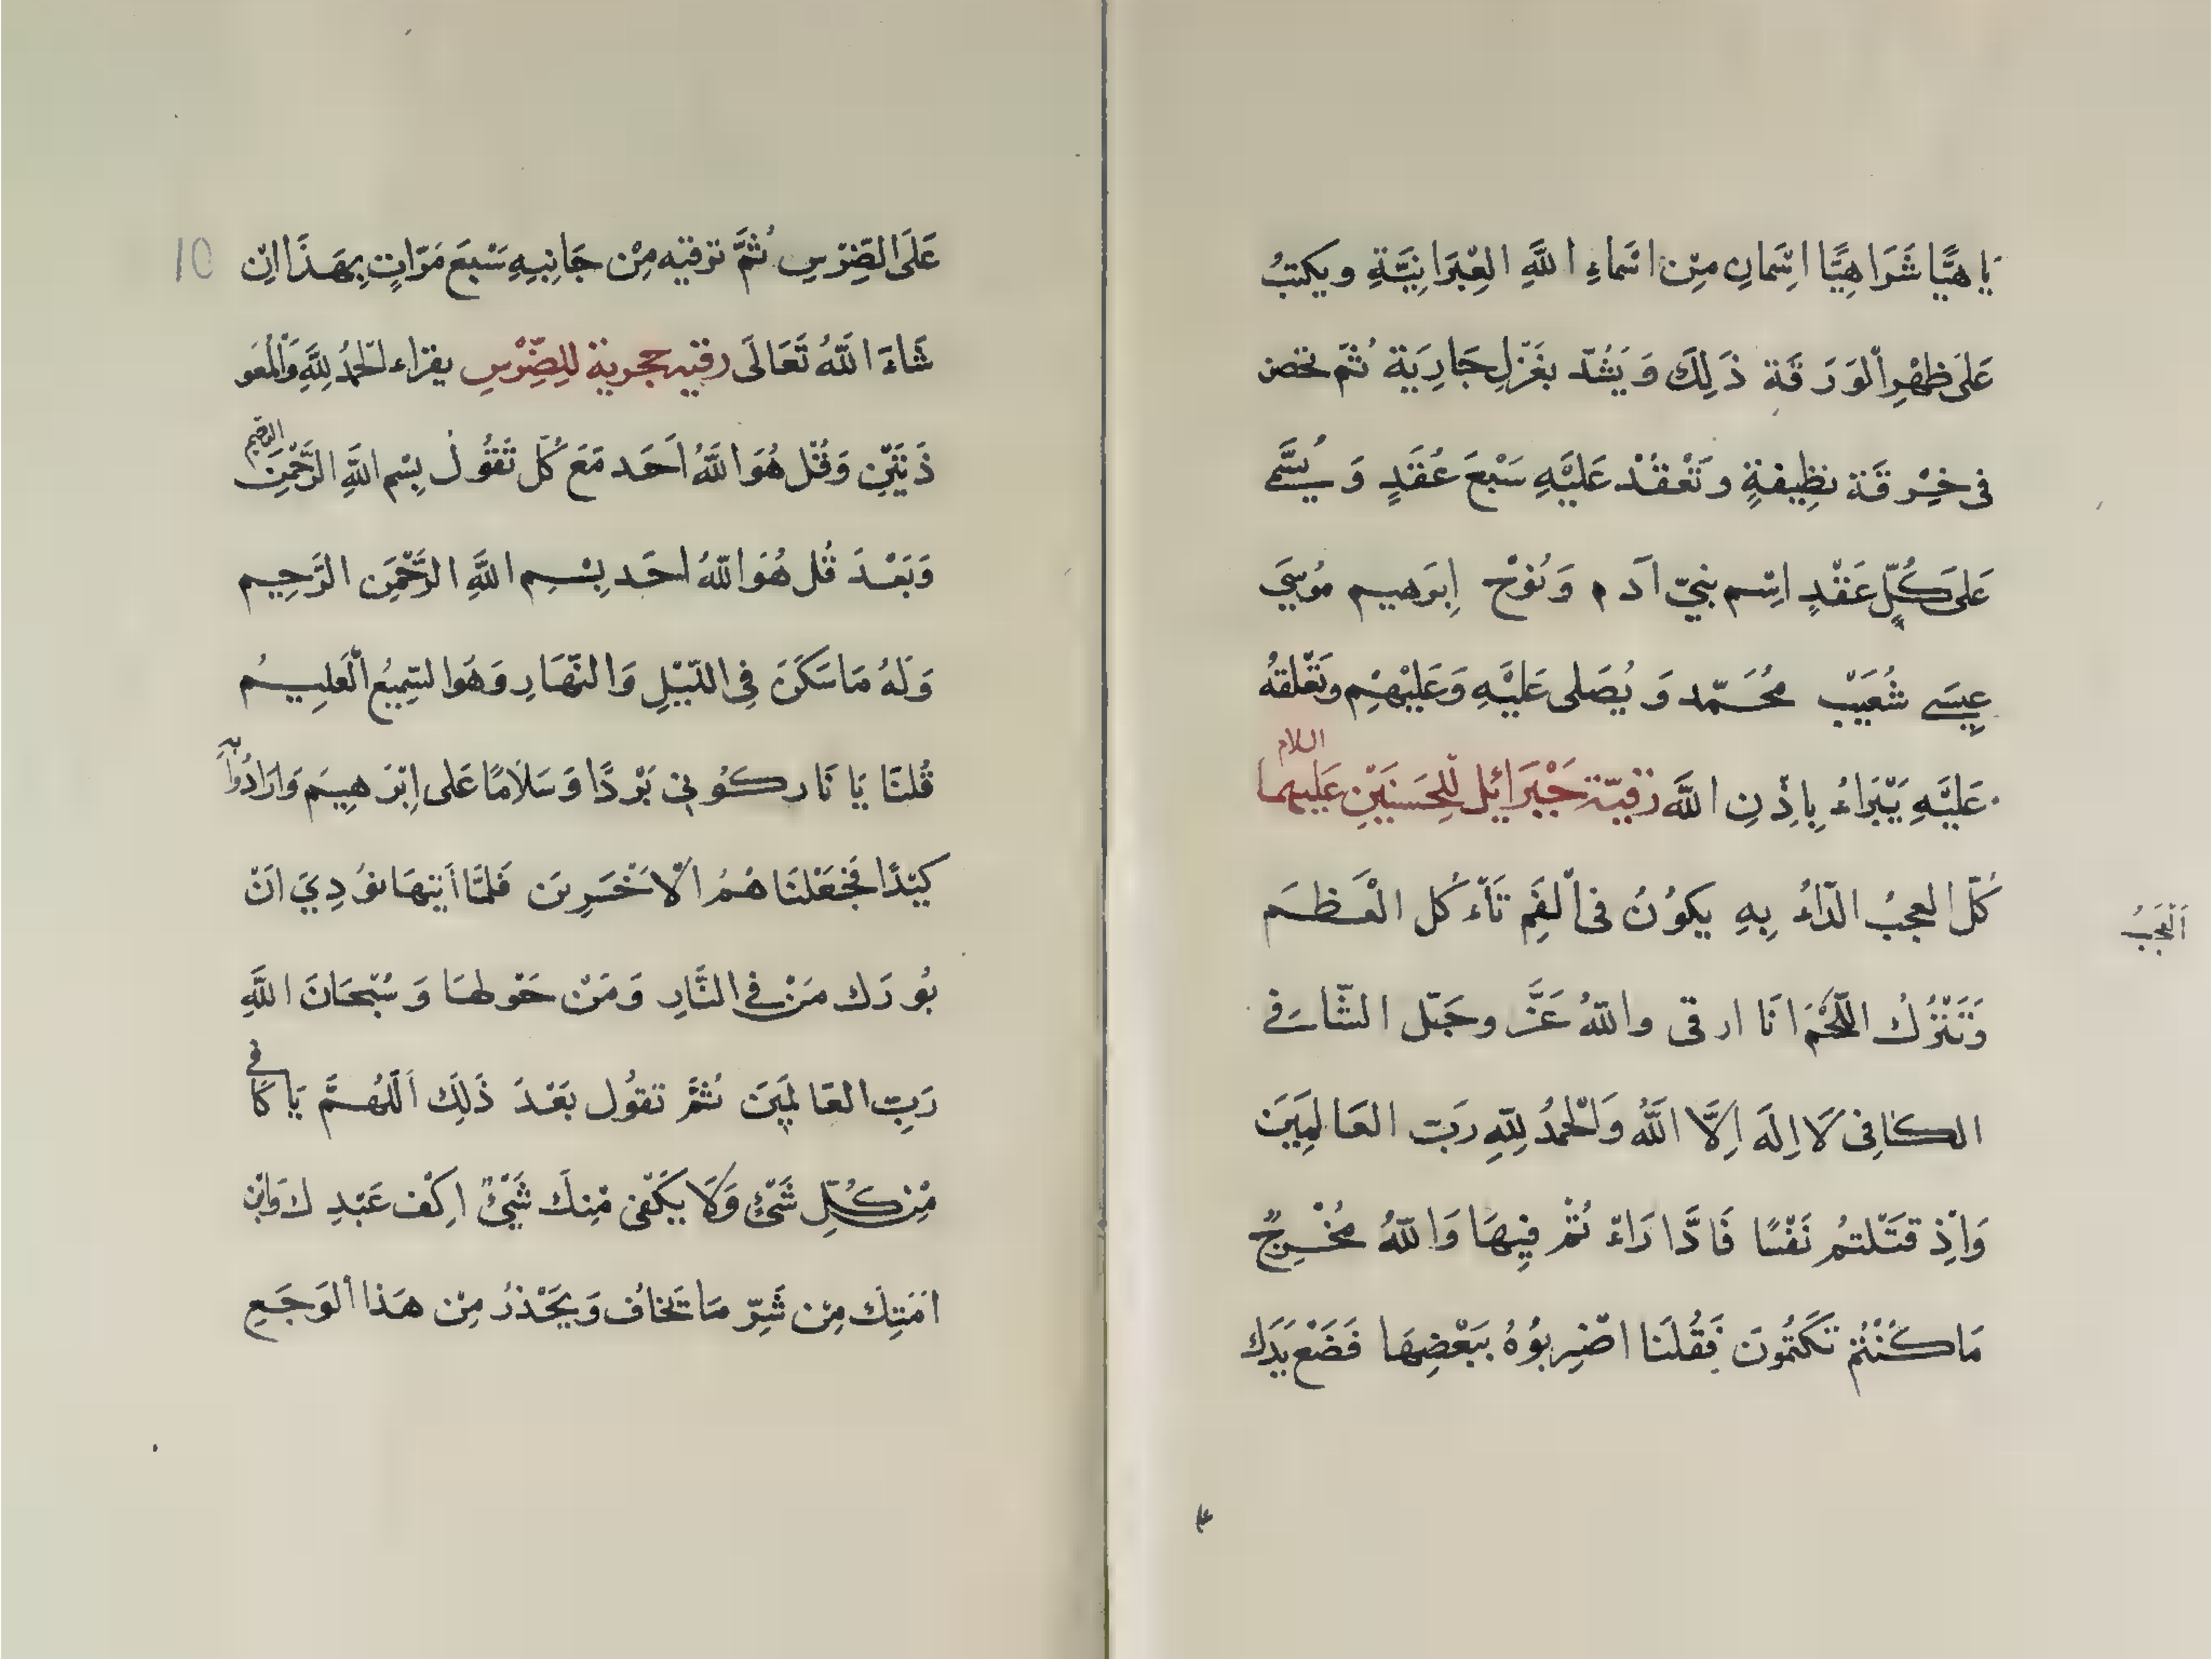 يَا هيًّا شَرَاهِيًّا اسْمانِ مِنْ اسْماءِ اللَّهِ العِبْرَانِيَّةِ ويكتبُ
عَلىَ ظهْرِ الْوَرَقَة ذَلِكَ وَيَشُدّ بغَزْلِ جَارِيَة ثُمَّ تخصر
فى خِرْقَة نظِيفةٍ وتَعْقدْ عَليْهِ سَبْعَ عُقَدٍ وَيُسَمّى
عَلىَ كُلِّ عَقْدٍ اسْم نبيّ ادَم وَنُوْح اِبرَهيم مُوسَي
عِيسَى شُعَيْب محُمَّد وَيُصَلى عَليْهِ وَعَليْهِم وتَعَلقهُ
عَليْهِ يَبْرَاءُ بِاذْنِ اللَّه رُقيّة جَبْرَائِل لِلحَسنَيْنِ عَليهما اللام
كُلّ العجبُ الدّاءُ بِهِ يكوُنُ فى الْفِم تَاءكُل الْعَظمَ
وَتَتْرُكُ اللّحْمَ انَا ارقى واللّهُ عَزَّ وجَلّ الشّافى
الكافِى لَا اِلَهَ اِلَّا اللَّهُ وَالْحمدُ لِلّهِ رَبّ العَالمِينَ
وَاذِ قتَلتمُ نَفْسًا فَادَّارَاءْ تُمْ فِيهَا وَاللّهُ مخُرِجٌ
مَا كُنْتُمْ تَكتُمُونَ فَقُلنَا اضْرِبوُهُ ببَعْضِهَا فَضَعْ يَدَك
اَلْعَجَبُ
10
عَلَى الضِرْسِ ثُمَّ ترقيه مِنْ جَانِبِهِ سَبعَ مَرّاتٍ بِهَذَا اِنْ
شَاءَ اللّهُ تَعَالَى رقيه حجرية للِضّرْسِ يقراء الحمدُ لِلَّهِ وَالْمُعَو
ذَتَيْنِ وَقُل هُوَ اللَّهُ اَحَد مَعَ كُلّ تَقُول بِسْم اللَّهِ الرَّحْمنِ الرحيم
وَبَعْدَ قُل هُوَ اللّهُ احَد بِسْمِ اللَّهِ الرَّحْمَن الرَّحِيم
وَلَهُ مَا سَكَنَ فِى اللّيْلِ وَالنّهَارِ وَهُوَ السّمِيعُ الْعَلِيمُ
قُلنَا يَا نَار كُونِى بَرْدًا وَسَلَامًا عَلى اِبْرَهِيم وَارَادُوا بِهِ
كيْدًا فَجَعَلنَاهُمُ الْاَخْسَرِين فَلمّا اَتيهَا نُودِيَ انْ
بُورَك مَنْ فى النَّارِ وَمَنْ حَوْلهَا وَسُبْحَانَ اللَّهِ
رَبِّ العَالمِينَ ثُمَّ تقوُل بَعْدَ ذَلِكَ اَللّهُمَّ يَا كَافى
مْن كُلِّ شَئٍ وَلَا يَكفى مْنِكَ شَئٌ اكِفْ عَبْدِك وَابْن
امَتِكَ مِن شَرّ مَا تَخافُ وَيَحْذرُ مِنْ هَذا الْوَجَعِ